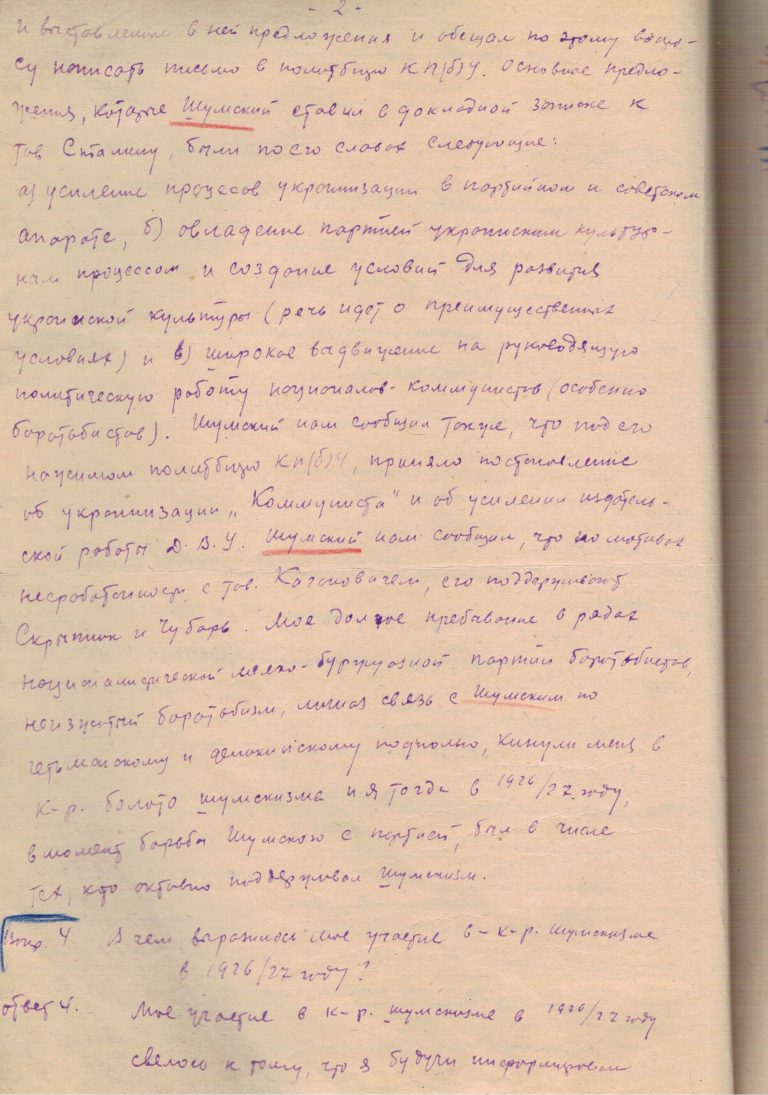 - 2 -
и выставленные в ней предложения и обещал по этому вопро-
су написать письмо в политбюро КП(б)У. Основные предло-
жения, которые Шумский ставил в докладной записке к
тов Сталину, были по его словах следующие:
а) усиление процессов украинизации в партийном и советском
апарате, б) овладение партией украинским культур-
ным процессом и создание условий для развития
украинской культуры (речь идет о преимущественных
условиях) и в) широкое выдвижение на руководящую
политическую работу националов-коммунистов (особенно
боротьбистов). Шумский нам сообщил также, что под его
нажимом политбюро КП(б)У, приняло постановление
об украинизации „Коммуниста" и об усилении издатель-
ской работы Д.В.У. Шумский нам сообщил, что по мотивах
несработанности с тов. Кагановичем, его поддерживают
Скрыпник и Чубарь. Мое долгое пребывание в рядах
националистической мелко-буржуазной партии боротьбистов,
неизжитый боротьбизм, личная связь с Шумским по
гетьманскому и деникинскому подполью, кинули меня в
к-р. болото шумскизма и я тогда в 1926/27 году,
в момент борьбы Шумского с партией, был в числе
тех, кто активно поддерживал шумскизм.
Вопр. 4 В чем выразилось мое участие в - к-р. шумскизме
в 1926/27 году?
ответ 4. Мое участие в к-р. шумскизме в 1926/27 году
свелось к тому, что я будучи информирован